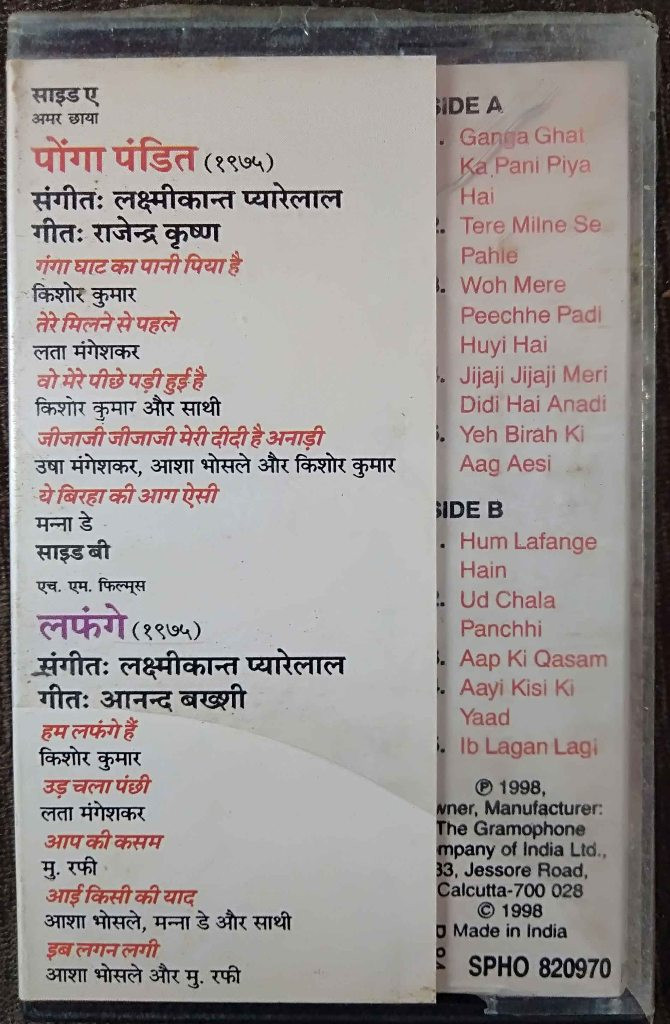 साइड ए
अमर छाया
पोंगा पंडित (१९७५)
संगीतः लक्ष्मीकान्त प्यारेलाल
गीतः राजेन्द्र कृष्ण
गंगा घाट का पानी पिया है
किशोर कुमार
तेरे मिलने से पहले
लता मंगेशकर
वो मेरे पीछे पड़ी हुई है
किशोर कुमार और साथी
जीजाजी जीजाजी मेरी दीदी है अनाड़ी
उषा मंगेशकर, आशा भोसले और किशोर कुमार
ये बिरहा की आग ऐसी
मन्ना डे
साइड बी
एच. एम. फिल्म्स
लफंगे (१९७५)
संगीतः लक्ष्मीकान्त प्यारेलाल
गीतः आनन्द बख्शी
हम लफंगे हैं
किशोर कुमार
उड़ चला पंछी
लता मंगेशकर
आप की कसम
मु. रफी
आई किसी की याद
आशा भोसले, मन्ना डे और साथी
इब लगन लगी
आशा भोसले और मु. रफी
SIDE A
Ganga Ghat
Ka Pani Piya
Hai
Tere Milne Se
Pahle
Woh Mere
Peechhe Padi
Huyi Hai
Jijaji Jijaji Meri
Didi Hai Anadi
Yeh Birah Ki
Aag Aesi
SIDE B
Hum Lafange
Hain
Ud Chala
Panchhi
Aap Ki Qasam
Aayi Kisi Ki
Yaad
Ib Lagan Lagi
℗ 1998,
wner, Manufacturer:
The Gramophone
mpany of India Ltd.,
33, Jessore Road,
Calcutta-700 028
© 1998
Made in India
SPHO 820970